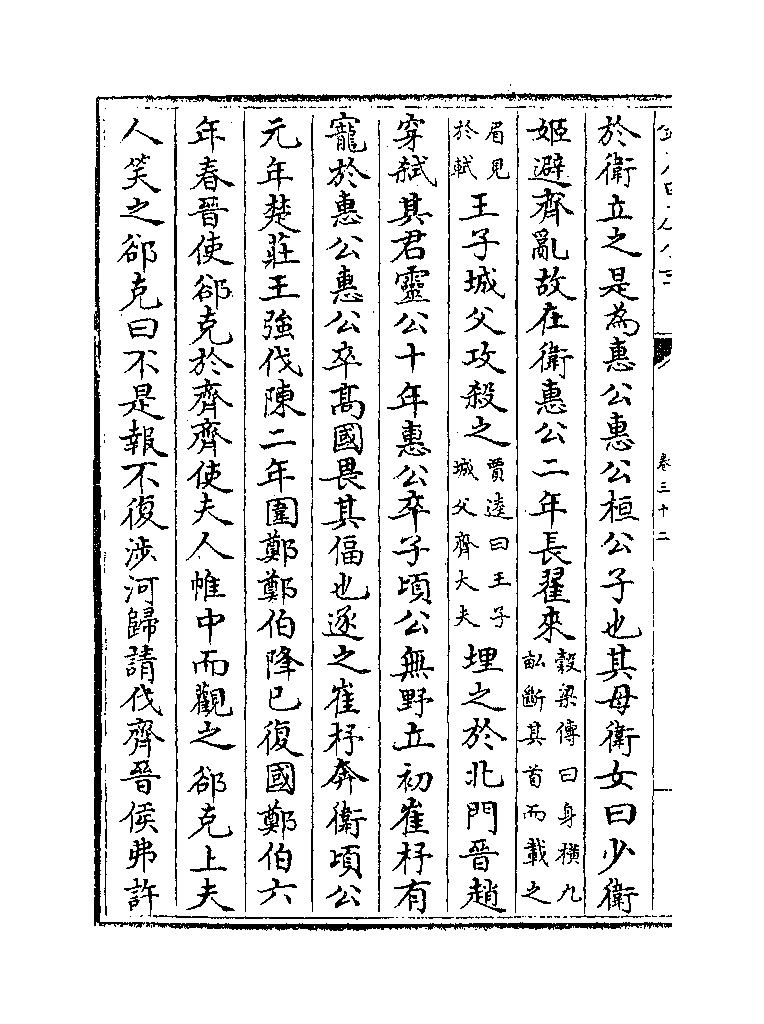 卷三十二
於衛立之是為惠公惠公桓公子也其母衛女曰少衛
姬避齊亂故在衛惠公二年長翟來榖梁傳曰身横九畝斷其首而載之
眉見於軾王子城父攻殺之賈逵曰王子城父齊大夫埋之於北門晉趙
穿弑其君靈公十年惠公卒子頃公無野立初崔杼有
寵於惠公惠公卒髙國畏其偪也逐之崔杼奔衛頃公
元年楚莊王強伐陳二年圍鄭鄭伯降已復國鄭伯六
年春晉使郤克於齊齊使夫人帷中而觀之郤克上夫
人笑之郤克曰不是報不復涉河歸請伐齊晉侯弗許